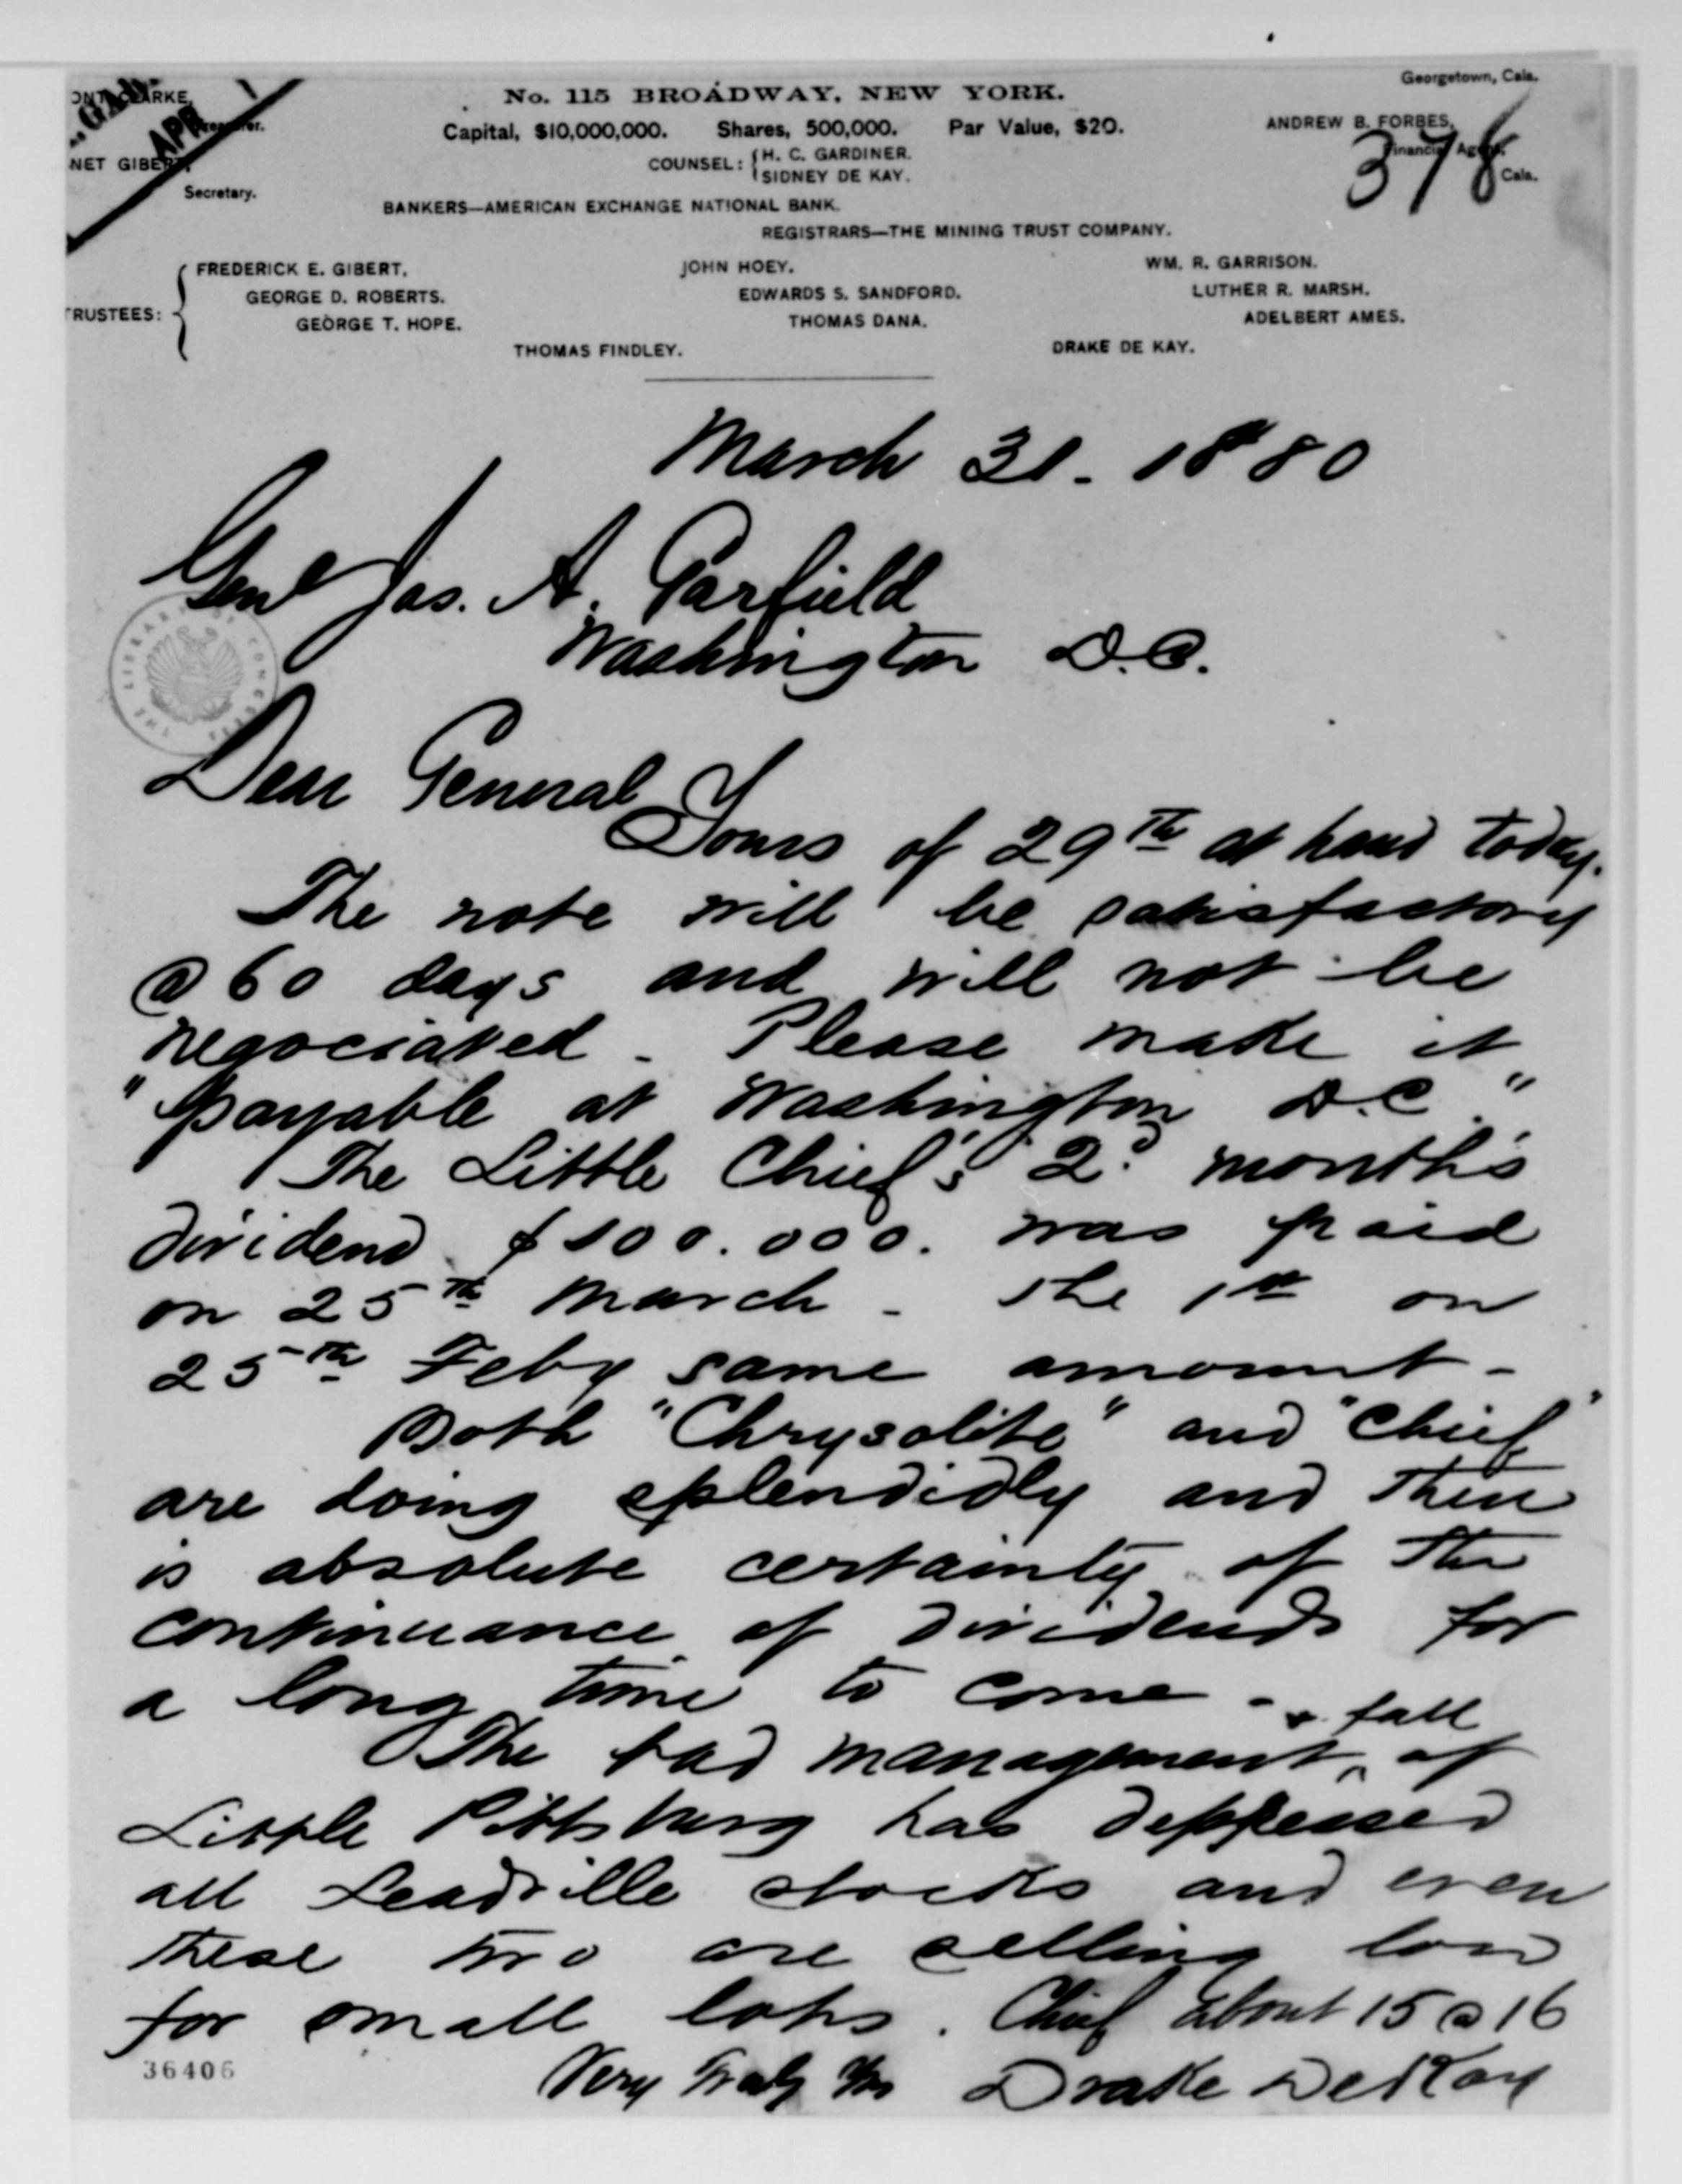 Georgetown, Cala.
No. 115 BROADWAY, NEW YORK.
Capital, $10,000,000. Shares, 500,000. Par Value, $20.
ANDREW B. FORBES,
Financial Agent.
Cala.
378
APR
NET GIBERT,
Secretary.
COUNSEL: H. C. GARDINER.
SIDNEY DE KAY.
BANKERS—AMERICAN EXCHANGE NATIONAL BANK.
REGISTRARS—THE MINING TRUST COMPANY.
TRUSTEES:
FREDERICK E. GIBERT. JOHN HOEY. WM. R. GARRISON.
GEORGE D. ROBERTS. EDWARDS S. SANDFORD. LUTHER R. MARSH.
GEORGE T. HOPE. THOMAS DANA. ADELBERT AMES.
THOMAS FINDLEY. DRAKE DE KAY.
March 31 - 1880
Genl Jas. A. Garfield
Washington D.C.
THE LIBRARY OF CONGRESS
Dear General
Yours of 29th at hand today.
The note will be satisfactory
@ 60 days and will not be
negociated - Please make it
"payable at Washington D.C."
The Little Chief's 2d month's
dividend $100.000. was paid
on 25th March - the 1st on
25th Feby same amount -
Both "Chrysolite" and "Chief"
are doing splendidly and there
is absolute certainty of the
continuance of dividends for
a long time to come -
The bad management & fall of
Little Pittsburg has depressed
all Leadville stocks and even
these two are selling low
for small lots. Chief about 15 @ 16
Very truly Yrs Drake DeKay
36406